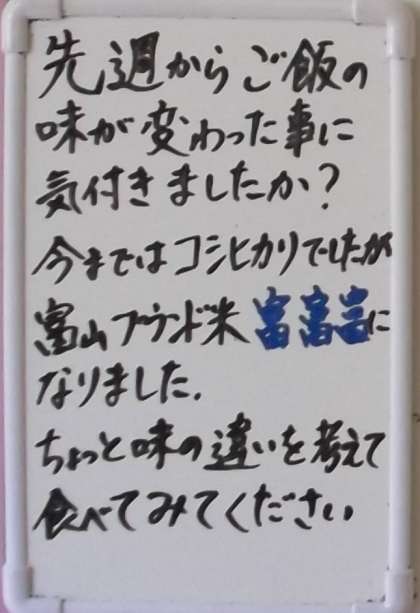 先週からご飯の
味が変わった事に
気付きましたか?
今まではコシヒカリでしたが
富山ブランド米 富富富に
なりました.
ちょっと味の違いを考えて
食べてみてください